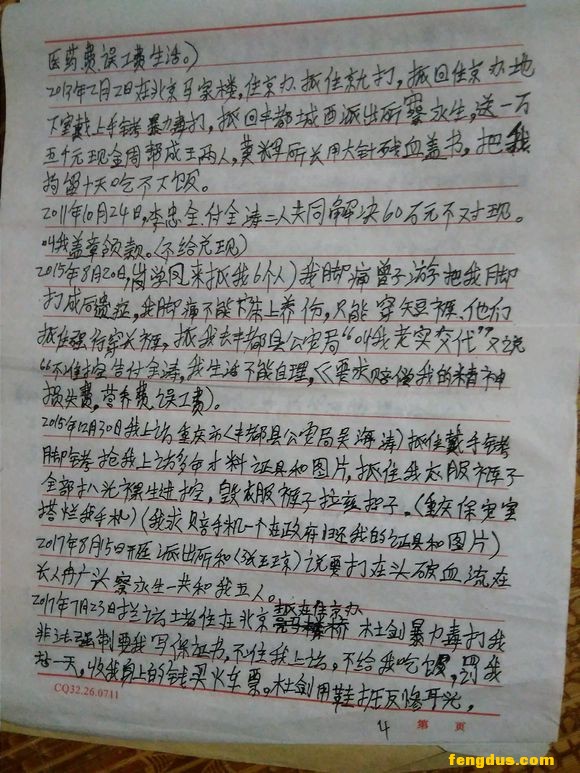 医药费误工费生活。)
2013年2月2日在北京马家楼,住京办抓住就打,抓回住京办地
下室戴上手铐暴力毒打,抓回丰都城西派出所察永生,送一万
五千元现金周帮成王两人,黄辉所长用大针残血盖书,把我
拘留十天吃不下饭。
2011年10月24日,李忠全.付全涛二人共同解决60万元不对现。
叫我盖章领款。(不给兑现)
2015年8月20日,学凤来抓我6个人)我脚痛曾子游字把我脚
打成后遗症,我脚痛不能下床上养伤,只能穿短裤、他们
抓住强行穿长裤,抓我去丰都县公安局“叫我老实交代”又说
“不准控告付全涛,我生活不能自理,《要求赔偿我的精神
损失费,营养费误工费)。
2015年12月30日我上访重庆市(丰都县公安局吴海涛)抓住戴手铐
脚铐抢我上访多年才料证具和图片,抓住我衣服裤子
全部扒光裸生进控,毁衣服裤子拉练扣子。(重庆保安室
搭烂我手机)(我求赔手机一个在政府归还我的证具和图片)
2017年8月15日 派出所和(张王京)说要打在头破血流在
长人冉广 察永生一共和我五人。
2017年7月23日拦访土者住在北京 住京办桥 杜剑暴力毒打我
非法强制要我写保证书,不住我上访,不给我吃饭,罚我
站一天,收我身上的钱买火车票。杜剑用鞋打反惨耳光,
CQ32.26.0711
4 第 页
fengdus.com